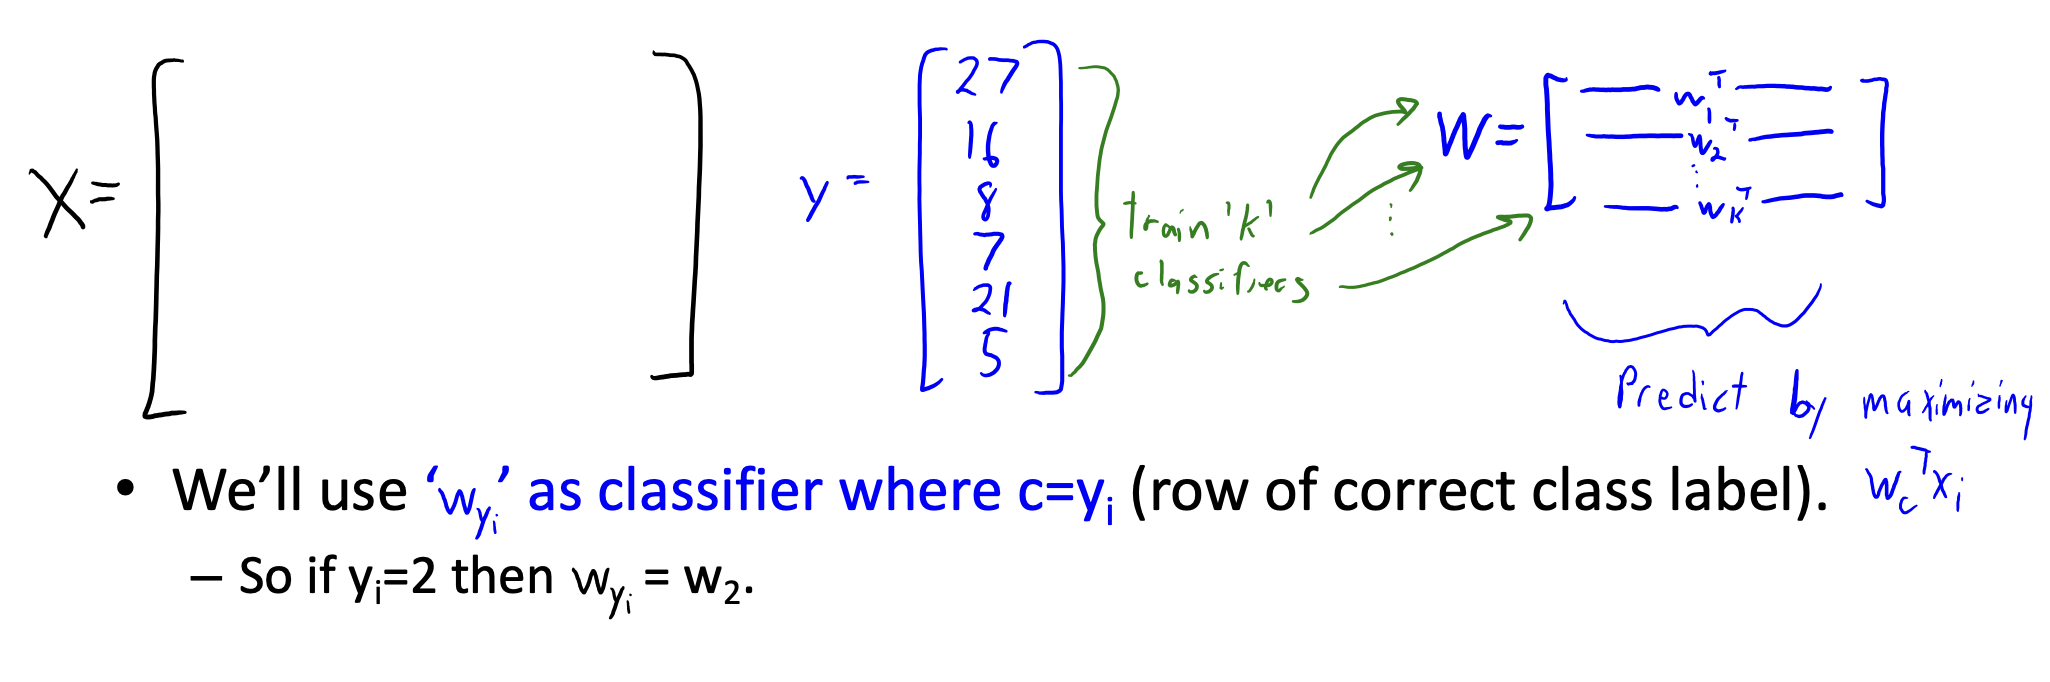 X=
y =
27
16
8
7
21
5
train 'k'
classifiers
W=
w₁ᵀ
w₂ᵀ
⋮
wₖᵀ
Predict by maximizing
w_cᵀxᵢ
• We'll use 'w_yᵢ' as classifier where c=yᵢ (row of correct class label).
– So if yᵢ=2 then w_yᵢ = w₂.